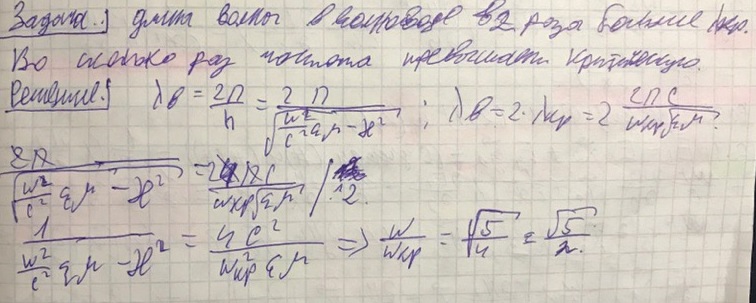 Задача: длина волны в волноводе в 2 раза больше λкр.
Во сколько раз частота превышает критическую.
Решение: λв = 2π/h = 2π/√(ω²/c² εμ − ϰ²) ; λв = 2·λкр = 2 2πc/(ωкр√εμ)
2π/√(ω²/c² εμ − ϰ²) = 2πc/(ωкр√εμ) /^2.
1/(ω²/c² εμ − ϰ²) = 4c²/(ω²кр εμ) => ω/ωкр = √5/4 = √5/2.